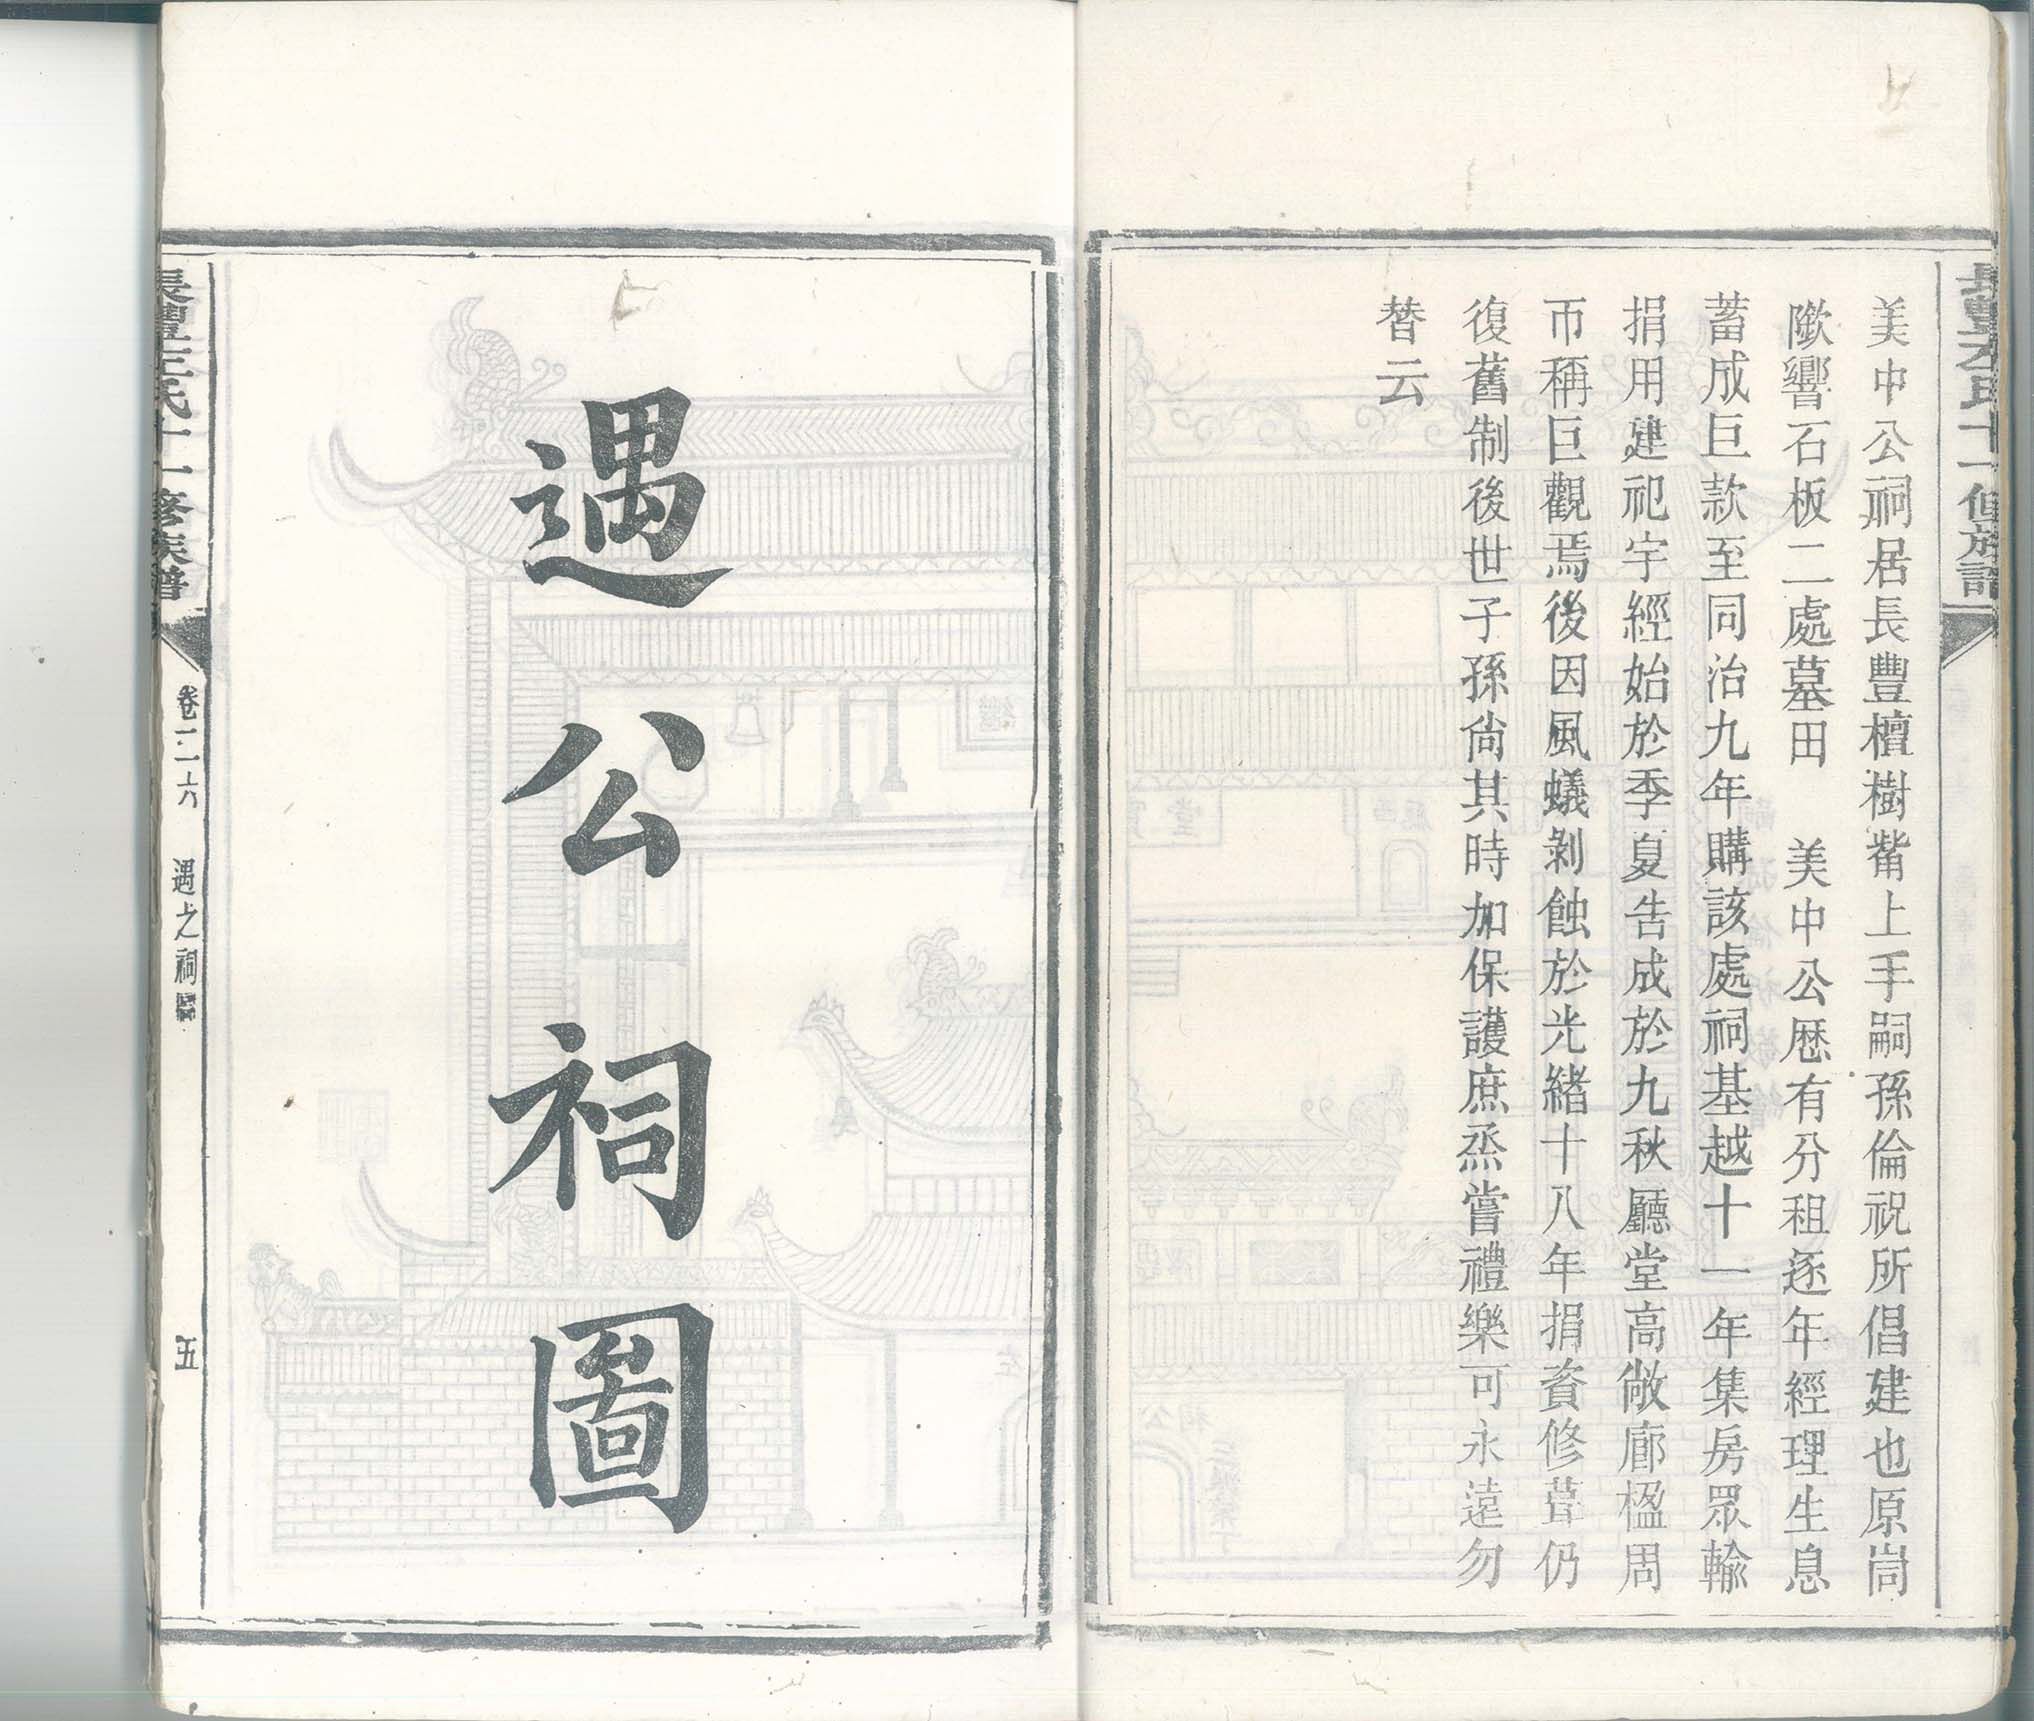 美中公祠居長豐檀樹觜上手嗣孫倫祝所倡建也原峝
歟響石板二處墓田　美中公歷有分租逐年經理生息
蓄成巨款至同治九年購該處祠基越十一年集房眾輸
捐用建祀宇經始於季夏告成於九秋廳堂高敞廊楹周
帀稱巨觀焉後因風蟻剝蝕於光緒十八年捐資修葺仍
復舊制後世子孫尙其時加保護庶烝嘗禮樂可永遠勿
替云
遇公祠圖
氏十一修族譜
卷二六
遇之祠圖
五